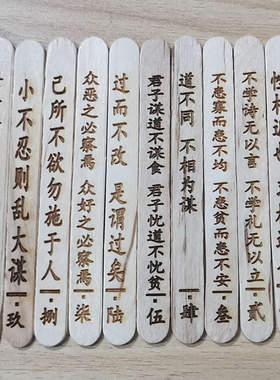 不学诗无以言 不学礼无以立 贰
不患寡而患不均 不患贫而患不安 叁
道不同 不相为谋 肆
君子谋道不谋食 君子忧道不忧贫 伍
过而不改 是谓过矣 陆
众恶之必察焉 众好之必察焉 柒
己所不欲勿施于人 捌
小不忍则乱大谋 玖